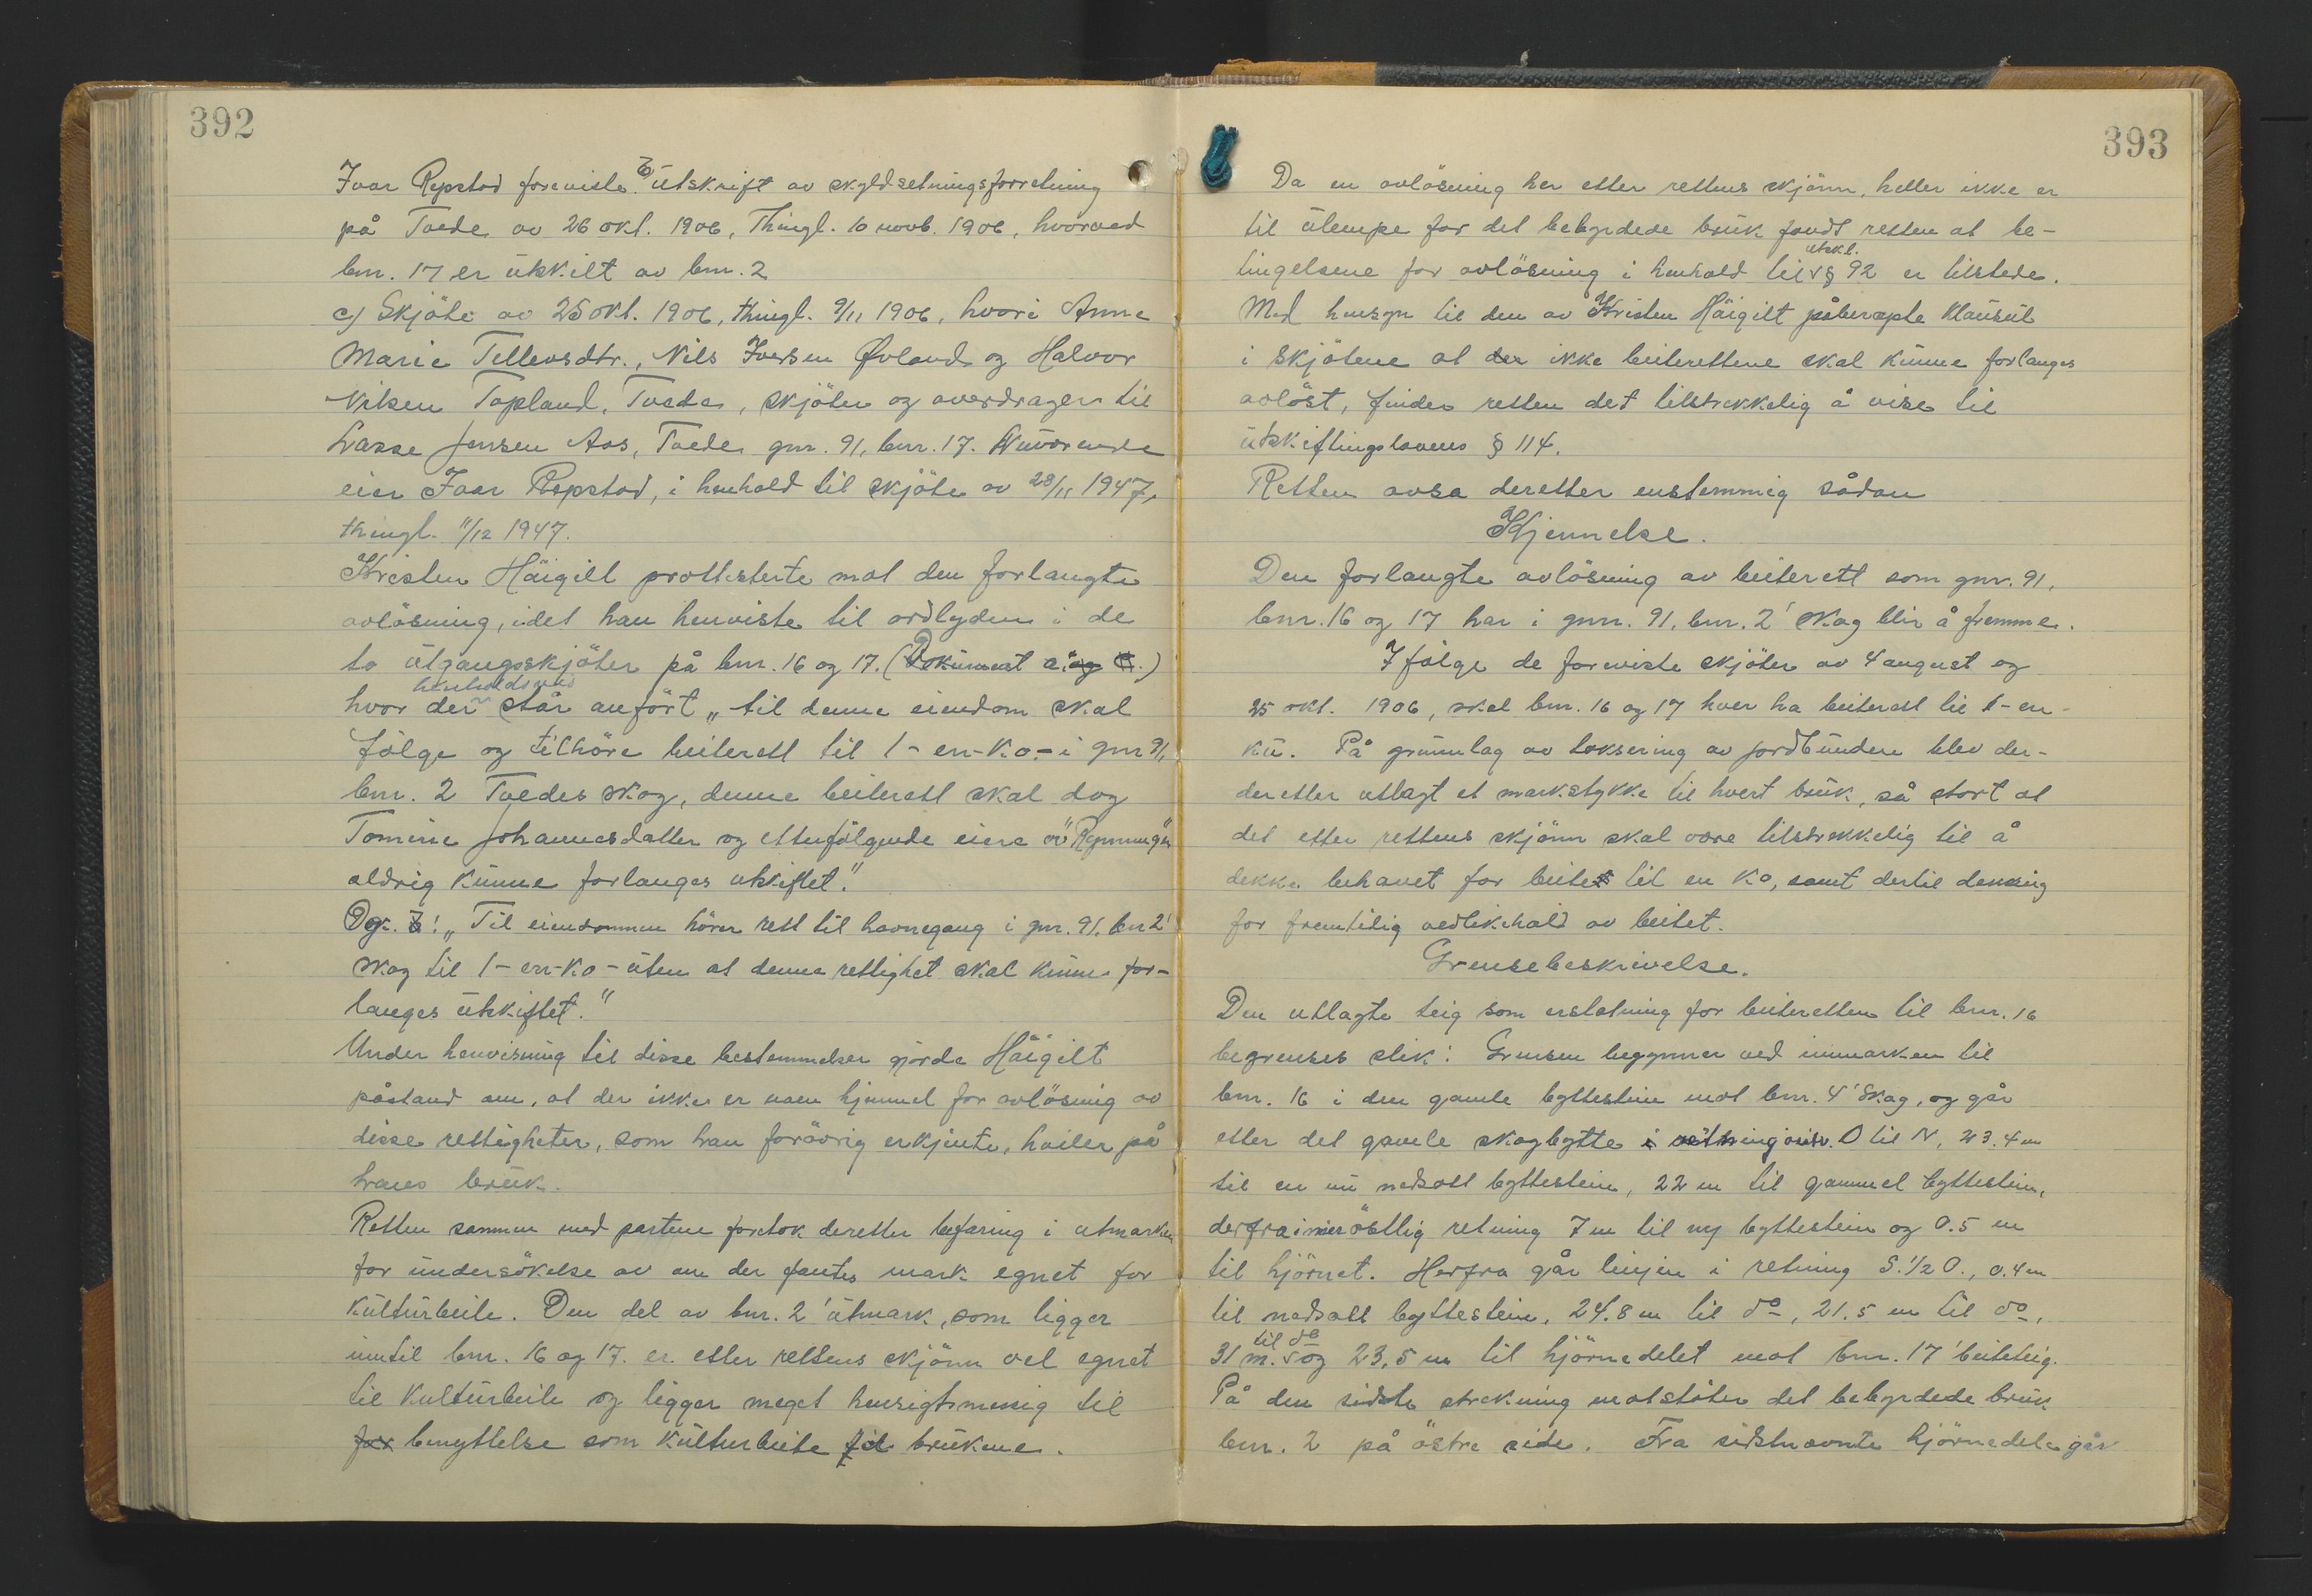 392
Ivar Repstad foreviste b) utskrift av skyldsetningsforretning
på Tvede av 26 okt. 1906, Thingl. 10 novb. 1906, hvorved
bnr. 17 er utskilt av bnr. 2
c) Skjöte av 25 okt. 1906, thingl. 9/11 1906, hvori Anne
Marie Tellevsdtr., Nils Iversen Øvland og Halvor
Nilsen Topland, Tvede, skjöter og overdrager til
Lasse Jensen Aas, Tvede gnr. 91, bnr. 17. Nuværende
eier Ivar Repstad, i henhold til skjöte av 28/11 1947,
thingl. 11/12 1947.
Kristen Häigilt protesterte mot den forlangte
avlösning, idet han henviste til ordlyden i de
to utgangsskjöter på bnr. 16 og 17. (Dokument a. og c.)
hvor der henholdsvis står anfört „til denne eiendom skal
fölge og tilhöre beiterett til 1-en-ko- i gnr 91,
bnr. 2 Tvedes skog, denne beiterett skal dog
Tomine Johannesdatter og etterfölgende eiere av "Rynning"
aldrig kunne forlanges utskiftet."
Og: „Til eiendommen hörer rett til havnegang i gnr. 91. bnr 2'
skog til 1-en-ko-uten at denne rettighet skal kunne for-
langes utskiftet."
Under henvisning til disse bestemmelser gjorde Häigilt
påstand om, at der ikke er noen hjemmel for avlösning av
disse rettigheter, som han forövrig erkjente, hviler på
hans bruk.
Retten sammen med partene foretok deretter befaring i utmarken
for undersökelse av om der fantes mark egnet for
kulturbeite. Den del av bnr. 2' utmark, som ligger
inntil bnr. 16 og 17. er etter rettens skjönn vel egnet
til kulturbeite og ligger meget hensigtsmessig til
for benyttelse som kulturbeite til brukene.
393
Da en avlösning her etter rettens skjönn, heller ikke er
til ulempe for det bebyrdede bruk fandt retten at be-
tingelsene for avlösning i henhold til utskl. § 92 er tilstede.
Med hensyn til den av Kristen Häigilt påberopte klausul
i skjötene at der ikke beiterettene skal kunne forlanges
avlöst, finder retten det tilstrekkelig å vise til
utskiftingslovens § 114.
Retten avsa deretter enstemmig sådan
Kjennelse.
Den forlangte avlösning av beiterett som gnr. 91,
bnr. 16 og 17 har i gnr. 91, bnr. 2' skog blir å fremme.
Ifölge de foreviste skjöter av 4 august og
25 okt. 1906, skal bnr. 16 og 17 hver ha beiterett til 1-en-
ku. På grunnlag av taksering av jordbunden blev der-
deretter utlagt et markstykke til hvert bruk, så stort at
det etter rettens skjönn skal være tilstrekkelig til å
dekke behovet for beite til en ko, samt dertil dekning
for fremtidig vedlikehold av beitet.
Grensebeskrivelse.
Den utlagte teig som erstatning for beiteretten til bnr. 16
begrenses slik: Grensen begynner ved innmarken til
bnr. 16 i den gamle byttestein mot bnr. 4' skog, og går
etter det gamle skogbytte i retning O til N, 23.4 m
til en nu nedsatt byttestein, 22 m til gammel byttestein,
derfra i mer östlig retning 7 m til ny byttestein og 0.5 m
til hjörnet. Herfra går linjen i retning S. 1/2 O., 0.4 m
til nedsatt byttestein, 24.8 m til do, 21.5 m til do,
31 m. til do og 23,5 m til hjörnedelet mot bnr. 17' beiteteig.
På den sidste strekning motstöter det bebyrdede bruk
bnr. 2 på östre side. Fra sidstnevnte hjörnedele går